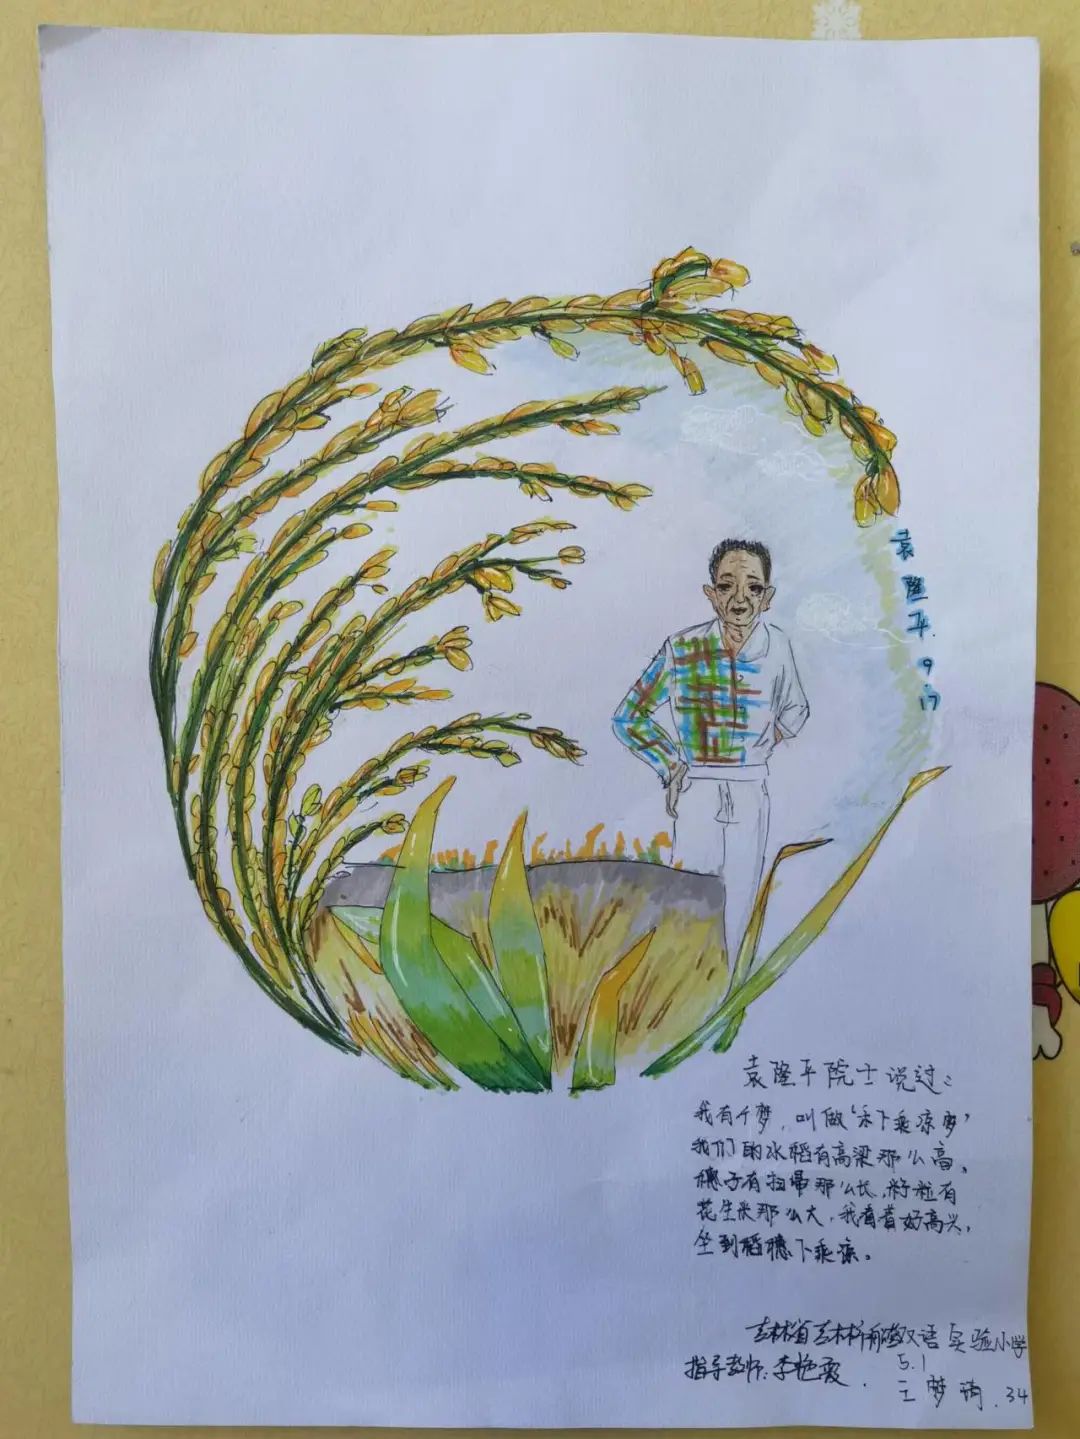 袁隆平.
9.17
袁隆平院士说过：
我有个梦，叫做‘禾下乘凉梦’
我们的水稻有高粱那么高，
穗子有扫帚那么长，籽粒有
花生米那么大，我看着好高兴，
坐到稻穗下乘凉。
吉林省吉林市 汉语实验小学
指导教师：李艳霞.
5.1
王梦琦.34